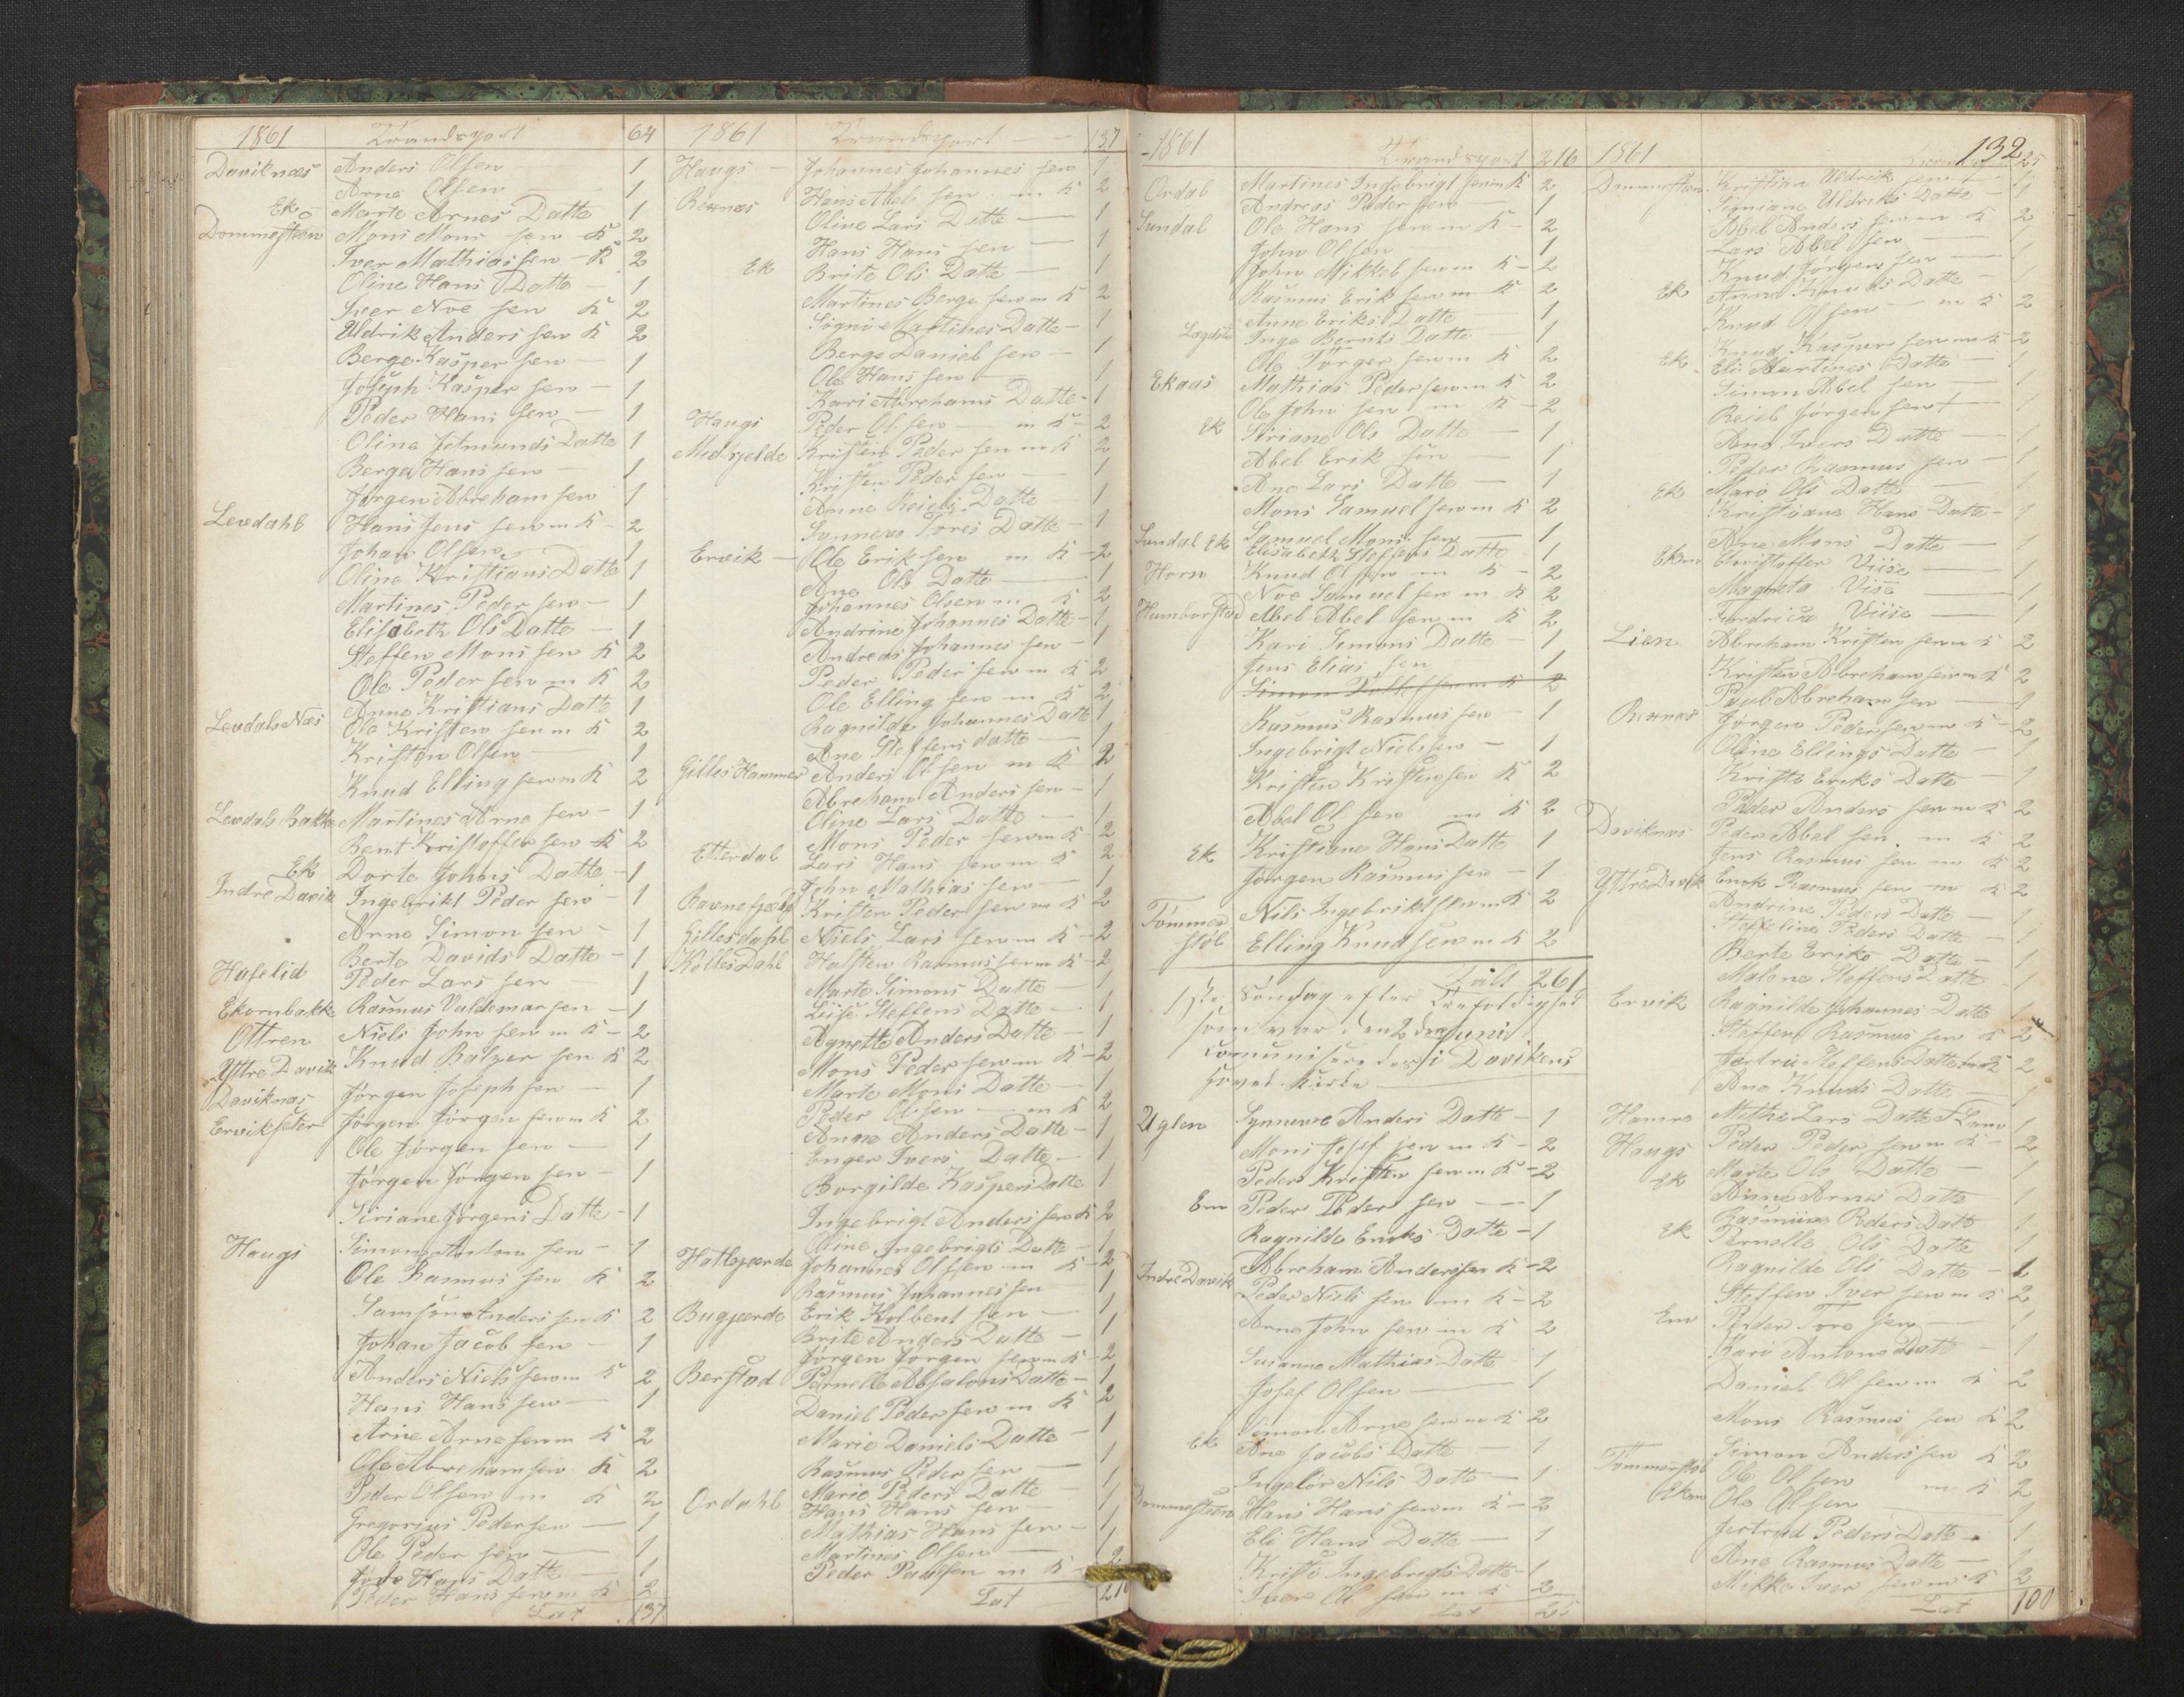 1861 Trandsport 64
Daviknæs Anders Olsen 1
Arne Olsen 1
Ek Marte Arnes Datte 1
Dommesteen Mons Mons sen K 2
Iver Mathias sen K 2
Oline Hans Datte 1
Iver Noe sen K 2
Uldrik Anders sen K 2
Berge Kasper sen 1
Joseph Kasper sen 1
Peder Hans sen 1
Oline Jetmunds Datte 1
Berge Hans sen 1
Jørgen Abreham sen 1
Levdahl Hans Jens sen m K 2
Johan Olsen 1
Oline Kristians Datte 1
Martines Peder sen 1
Elisabeth Ols Datte 1
Steffen Mons sen K 2
Ole Peder sen m K 2
Anne Kristians Datte 1
Levdals Næs Ole Kristen sen m K 2
Kristen Olsen 1
Knud Elling sen m K 2
Levdals Bakke Martines Arne sen 1
Bent Kristoffer sen K 2
Ek Dorte Johns Datte 1
Indre Davik Ingebrikt Peder sen 1
Arne Simon sen 1
Berte Davids Datte 1
Hafslid Peder Lars sen 1
Ekornbakke Rasmus Valdemar sen 1
Ottren Niels John sen m K 2
Yttre Davik Knud Balzer sen K 2
Daviknæs Jørgen Joseph sen 1
Ervikseter Jørgen Jørgen sen m K 2
Ole Jørgen sen 1
Jørgen Jørgen sen 1
Siriane Jørgens Datte 1
Haugs Simon Anton sen 1
Ole Rasmus sen K 2
Samson Anders sen K 2
Johan Jacob sen 1
Anders Niels sen m K 2
Hans Hans sen 1
Arne Arne sen m K 2
Ole Abreham sen K 2
Peder Olsen m K 2
Gregorius Peder sen 1
Ole Peder sen 1
Hans Datte 1
Peder Hans sen m K 2
Lat 137
1861 Trandsport 137
Haugs Johannes Johannes sen 1
Rexnæs Hans Abel sen m K 2
Oline Lars Datte 1
Hans Hans sen 1
Ek Brite Ols Datte 1
Martines Berge sen m K 2
Signe Martines Datte 1
Berge Daniel sen 1
Ole Hans sen 1
Kari Abrehams Datte 1
Haugs Peder Olsen m K 2
Midtgjelde Kristen Peder sen m K 2
Kristen Peder sen 1
Anne Reiels Datte 1
Sunneva Tores Datte 1
Ervik Ole Erik sen m K 2
Ane Ols Datte 1
Johannes Olsen m K 2
Andrine Johannes Datte 1
Andreas Johannes sen 1
Peder Peder sen m K 2
Ole Elling sen m K 2
Ragnilde Johannes Datte 1
Ane Steffens datte 1
Gilles Hammer Anders Olsen m K 2
Abreham Anders sen 1
Oline Lars Datte 1
Mons Peder sen m K 2
Etterdal Lars Hans sen m K 2
John Mathias sen 1
Ravnefjeld Kristen Peder sen m K 2
Gillesdahl Niels Lars sen m K 2
Kolles Dahl Halsten Rasmus sen m K 2
Marte Simons Datte 1
Lise Steffens Datte 1
Agnette Anders Datte 1
Mons Peder sen m K 2
Marte Mons Datte 1
Peder Olsen m K 2
Anne Anders Datte 1
Enger Ivers Datte 1
Borgilde Kaspers Datte 1
Ingebrigt Anders sen K 2
Oline Ingebrigts Datte 1
Hatlegjærde Johannes Olsen m K 2
Rasmus Johannes sen 1
Bugjærde Erik Kolbent sen 1
Brite Anders Datte 1
Jørgen Jørgen sen m K 2
Berstad Pernelle Absalons Datte 1
Daniel Peder sen m K 2
Marie Daniels Datte 1
Rasmus Peder sen 1
Marie Peders Datte 1
Ordahl Hans Hans sen 1
Mathias Hans sen 1
Martines Olsen 1
Peder Paulsen m K 2
Lat
1861 Trandsport 216
Ordal Martines Ingebrigt sen m K 2
Andreas Peder sen 1
Sundal Ole Hans sen m K 2
John Olsen 1
John Mikkel sen m K 2
Rasmus Erik sen m K 2
Anne Eriks Datte 1
Inge Bernts Datte 1
Ole Jørgen sen m K 2
Ekaas Mathias Peder sen m K 2
Ole John sen m K 2
Ek Siriane Ols Datte 1
Abel Erik sen 1
Ane Lars Datte 1
Mons Samuel sen m K 2
Sundal Ek Samuel Mons sen 1
Elisabeth Stoffers Datte 1
Horn Knud Olsen m K 2
Noe Samuel sen m K 2
Humborstad Abel Abel sen m K 2
Kari Simons Datte 1
Jens Elias sen 1
Simon Tollef sen m K 2
Rasmus Rasmus sen 1
Ingebrigt Niels sen 1
Kristen Kristen sen K 2
Abel Olsen m K 2
Ek Kristiane Hans Datte 1
Jørgen Rasmus sen 1
Nils Ingebrikt sen m K 2
Tømmer støl Elling Knud sen m K 2
Talt 261
1ste Søndag efter Trefoldighed
som var den 2den Juni
comunisere des i Davikens
Hoved Kirke
Uglen Synneve Anders Datte 1
Mons Josef sen m K 2
Peder Kristen sen m K 2
Em Peder Peder sen 1
Ragnilde Eriks Datte 1
Abreham Anderssen K 2
Indre Davik Peder Niels sen m K 2
Arne John sen m K 2
Susanne Mathias Datte 1
Josef Olsen 1
Simon Arne sen m K 2
Ek Ane Jacobs Datte 1
Ingelør Nils Datte 1
Dommesteen Hans Hans sen m K 2
Eli Hans Datte 1
Kriste Ingebrigts Datte 1
Iver Ol sen m K 2
Lat 25
132
1861
Dommesteen Kristian Uldrik sen 1
Simiane Uldriks Datte 1
Abel Anders sen m K 2
Lars Abel sen 1
Knud Jørgen sen 1
Ek Anne Knuds Datte 1
Knud Olsen m K 2
Knud Kasper sen m K 2
Ek Eli Martines Datte 1
Simon Abel sen 1
Reiel Jørgen sen 1
Ane Ivers Datte 1
Peder Rasmus sen 1
Ek Mari Ols Datte 1
Kristiane Hans Datte 1
Ane Mons Datte 1
Ekm Christoffer Viise 1
Magreta Vise 1
Fredrica Viise 1
Lien Abreham Kristen sen m K 2
Kristen Abreham sen m K 2
Paul Abreham sen 1
Rexnæs Jørgen Peder sen m K 2
Oline Ellings Datte 1
Kriste Eriks Datte 1
Peder Anders sen m K 2
Daviknæs Peder Abel sen m K 2
Jens Rasmus sen m K 2
Yttre Davik Enok Rasmus sen m K 2
Andrine Peders Datte 1
Steffeline Peders Datte 1
Berte Eriks Datte 1
Malene Steffens Datte 1
Ervik Ragnilde Johannes Datte 1
Steffen Rasmus sen K 2
Jertru Steffens Datte m K 2
Ane Knuds Datte 1
Hamre Mette Lars Datte 1
Haugs Peder Peder sen m K 2
Marte Ols Datte 1
Ek Anne Arnes Datte 1
Rasmine Peders Datte 1
Ek Pernelle Ols Datte 1
Ragnilde Ols Datte 1
Steffen Iver sen m K 2
Em Peder Tore sen 1
Kari Antons Datte 1
Daniel Olsen m K 2
Mons Rasmus sen K 2
Simon Anders sen K 2
Tømmerstøl Ole Olsen m K 2
Ekm Ole Olsen 1
Jertrud Peders Datte 1
Ane Rasmus Datte 1
Mikke Iver sen m K 2
Lat 100